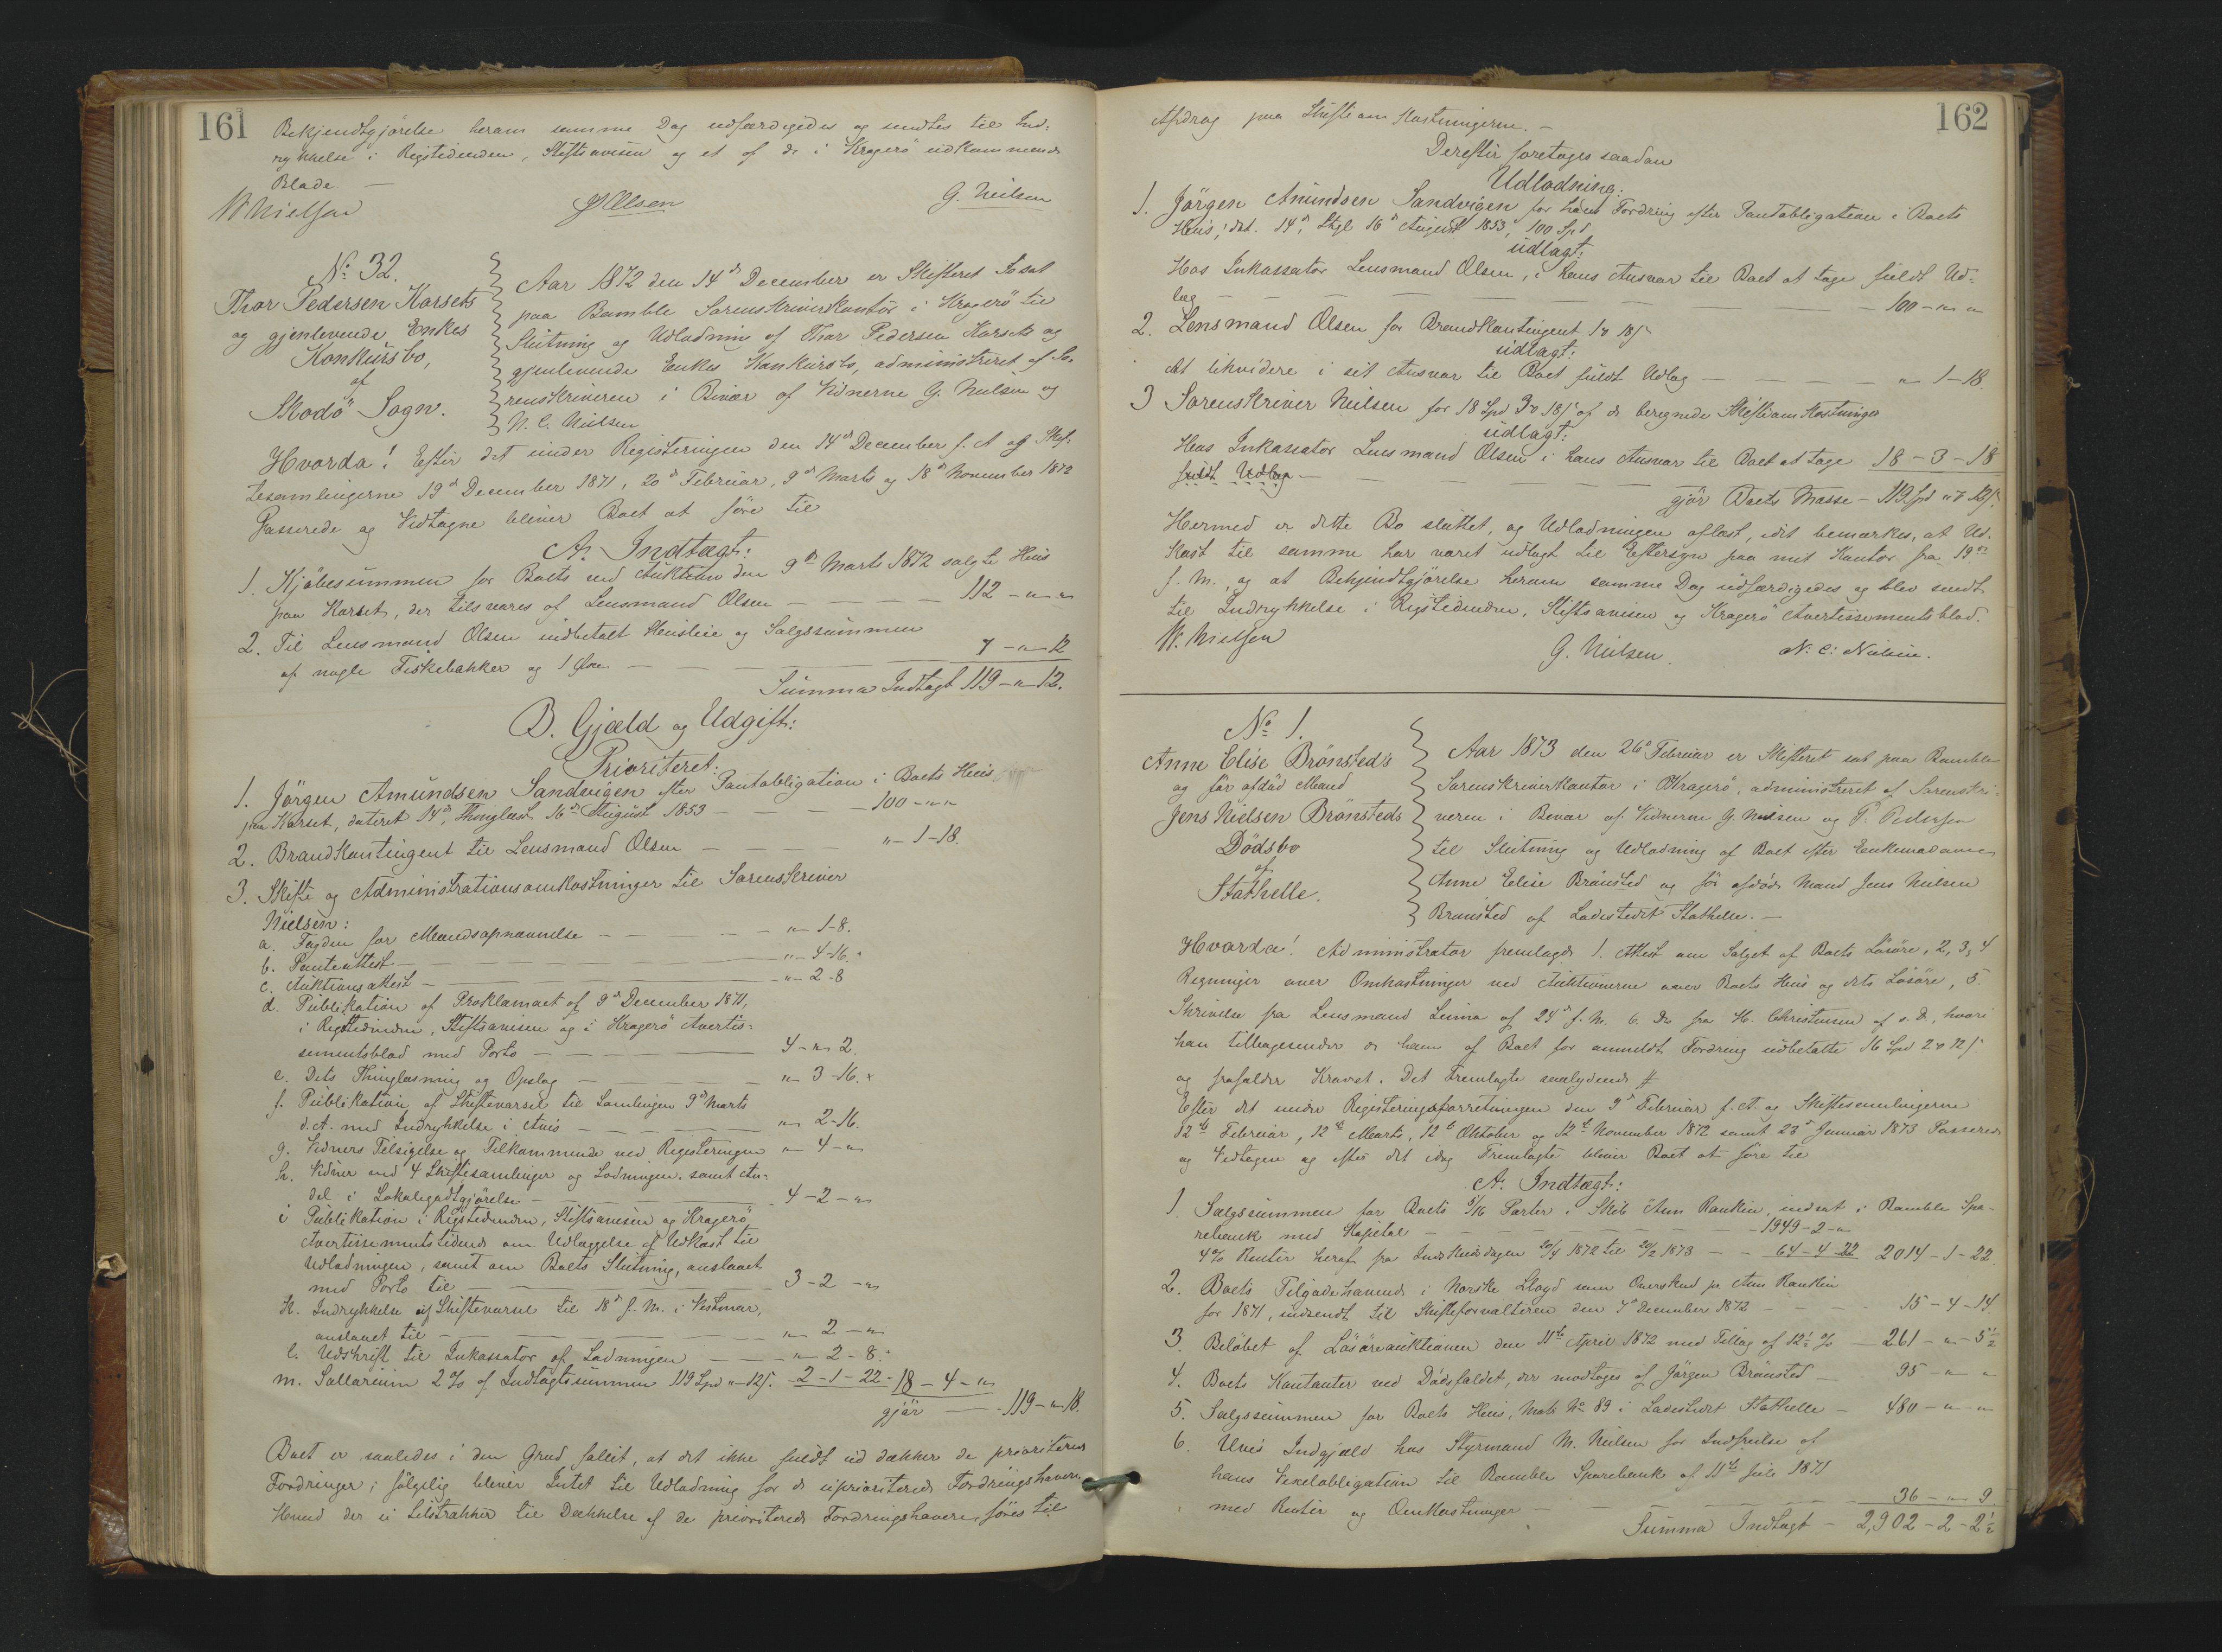 161
Bekjendtgjørelse herom samme Dag udfærdigedes og sendtes til Ind-
rykkelse i Rigstidenden, Stiftsavisen og et af de i Kragerö udkommende
Blade —
W Nielsen JOlsen G. Neilsen
No 32.
Thor Pedersen Korsets
og gjenlevende Enkes
Konkursbo,
af
Skodö Sogn.
Aar 1872 den 14de December er Skifteret sat
paa Bamble Sorenskriverkontor i Kragerö til
Slutning og Udlodning af Thor Pedersen Korsets og
gjenlevende Enkes Konkursbo, administreret af So-
renskriveren i Bivær af Vidnerne G. Neilsen og
N. C. Nielsen
Hvorda! Efter det under Registeringen den 14de December f. A. og Skif-
tesamlingerne 19de December 1871, 20de Februar, 9de Marts og 18de November 1872
Passerede og Vidtagne bliver Boet at före til
A. Indtægt:
1. Kjöbesummen for Boets ved Auktion den 9de Marts 1872 solgte Huus
paa Korset, der tilsvares af Lensmand Olsen — 112 - " - "
2. Til Lensmand Olsen indbetalt Husleie og Salgssummen
af nogle Fiskebakker og 1 — 7 - " - 12
Summa Indtægt 119 - " - 12.
B. Gjæld og Udgift:
Prioriteret:
1. Jörgen Amundsen Sandvigen efter Pantobligation i Boets Huus
paa Korset, dateret 14de, Thinglæst 16de August 1853 — 100 - " - "
2. Brandkontingent til Lensmand Olsen — " - 1 - 18.
3. Skifte og Administrationsomkostninger til Sorenskriver
Nielsen:
a. Fogden for Mændsopnævnelse — " - 1 - 8.
b. Panteattest — " - 4 - 16.
c. Auktionsattest — " - 2 - 8
d. Publikation af Proklamaet af 9de December 1871,
i Rigstidenden, Stiftsavisen og i Kragerö Avertis-
sementsblad med Porto — 4 - " - 2.
e. Dets Thinglæsning og Opslag — " - 3 - 16.
f. Publikation af Skiftevarsel til Samlingen 9de Marts
d. A. med Indrykkelse i Avis — " - 2 - 16.
g. Vidners Tilsigelse og Tilkommende ved Registeringen " - 4 - "
h. Vidner ved 4 Skiftesamlinger og Lodningen, samt An-
del i Lokalegodtgjörelse — 4 - 2 - "
i Publikation i Rigstidenden, Stiftsavisen og Kragerö
Avertissementstidende om Udlæggelse af Udkast til
Udlodningen, samt om Boets Slutning, anslaaet
med Porto til — 3 - 2 - "
k. Indrykkelse af Skiftevarsel til 18de f. M. i Vestmar,
anslaaet til — " - 2 - "
l. Udskrift til Inkassator af Lodningen — " - 2 - 8.
m. Sallarium 2 % af Indtægtssummen 119 Spd " - 12 s. - 2 - 1 - 22 - 18 - 4 - "
gjör — 119 - " - 18.
Boet er saaledes i den Grad fallit, at det ikke fuldt ud dækker de prioriterede
Fordringer; fölgelig bliver Intet til Udlodning for de uprioriterede Fordringshavere.
Hvad der ei tilstrækker til Dækkelse af de prioriterede Fordringshavere, föres til
162
Afdrag paa Skifteomkostningerne. —
Derefter foretoges saadan
Udlodning:
1. Jörgen Amundsen Sandvigen for hans Fordring efter Pantobligation i Boets
Huus, dat. 14de, tlgl. 16de August 1853, 100 Spd
udlagt:
Hos Inkassator Lensmand Olsen, i hans Ansvar til Boet at tage fuldt Ud-
læg — 100 - " - "
2. Lensmand Olsen for Brandkontingent 1 o 18 s
udlagt:
At likvidere i sit Ansvar til Boet fuldt Udlæg — " - 1 - 18.
3 Sorenskriver Neilsen for 18 Spd 3 o 18 s af de beregnede Skifteomkostninger
udlagt:
Hos Inkassator Lensmand Olsen i hans Ansvar til Boet at tage 18 - 3 - 18
fuldt Udlæg —
gjör Boets Masse — 119 Spd " o 12 s.
Hermed er dette Bo sluttet, og Udlodningen oplæst, idet bemærkes, at Ud-
kast til samme har været udlagt til Eftersyn paa mit Kontor fra 19de
f. M., og at Bekjendtgjörelse herom samme Dag udfærdigedes og blev sendt
til Indrykkelse i Rigstidenden, Stiftsavisen og Kragerö Avertissementsblad.
W. Nielsen G. Neilsen. N. C. Nielsen.
No 1.
Anne Elise Brönsted's
og för afdöd Mand
Jens Nielsen Brönsteds
Dödsbo
af
Stathelle.
Aar 1873 den 26de Februar er Skifteret sat paa Bamble
Sorenskriverkontor i Kragerö, administreret af Sorenskri-
veren i Bevær af Vidnerne G. Neilsen og P. Pedersen
til Slutning og Udlodning af Boet efter Enkemadame
Anne Elise Brönsted og för afdöde Mand Jens Neilsen
Brönsted af Ladestedet Stathelle. —
Hvorda! Administrator fremlagde 1. Attest om Salget af Boets Lösöre, 2, 3, 4
Regninger over Omkostninger ved Auktionerne over Boets Huus og dets Lösöre, 5.
Skrivelse fra Lensmand Leima af 24de f. M. 6. Do fra H. Christensen af s. D., hvori
han tilbagesender de ham af Boet for anmeldt Fordring udbetalte 16 Spd 2 o 12 s
og frafalder Kravet. Det Fremlagte saalydende #
Efter det under Registeringsforretningen den 3de Februar f. A. og Skiftesamlingerne
12te Februar, 12te Marts, 12te Oktober og 12te November 1872 samt 23de Januar 1873 Passerede
og Vidtagne og efter det idag Fremlagte bliver Boet at före til
A. Indtægt:
1. Salgssummen for Boets 5/16 Parter i Skib Ann Rankin, indsat i Bamble Spa-
rebank med Kapital — 1949 - 2 - "
4 % Renter heraf fra Indskudsdagen 20/4 1872 til 20/2 1873 — 64 - 4 22 2014 - 1 - 22.
2. Boets Tilgodehavende i Norske Lloyd som Overskud pr Ann Rankin
for 1871, indsendt til Skifteforvalteren den 7de December 1872 — 15 - 4 - 14.
3. Belöbet af Lösöreauktionen den 11te April 1872 med Tillæg af 12½ % — 261 - " - 5½
4. Boets Kontanter ved Dödsfaldet, der modtoges af Jörgen Brönsted — 95 - " - "
5. Salgssummen for Boets Huus, Matr No 89 i Ladestedet Stathelle — 480 - " - "
6. Uvis Indgjæld hos Styrmand M. Neilsen for Indfrielse af
hans Vexelobligation til Bamble Sparebank af 11te Juli 1871
med Renter og Omkostninger — 36 - " - 9
Summa Indtægt — 2,902 - 2 - 2½